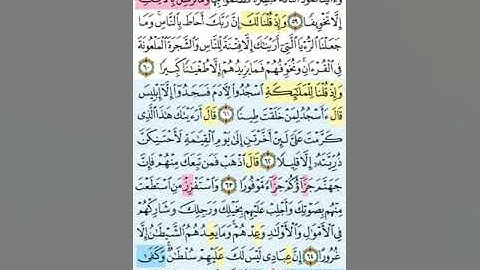 إِلَّا تَخْوِيفًا ٥٩ وَإِذْ قُلْنَا لَكَ إِنَّ رَبَّكَ أَحَاطَ بِالنَّاسِ وَمَا
جَعَلْنَا الرُّءْيَا الَّتِي أَرَيْنَاكَ إِلَّا فِتْنَةً لِلنَّاسِ وَالشَّجَرَةَ الْمَلْعُونَةَ
فِي الْقُرْءَانِ وَنُخَوِّفُهُمْ فَمَا يَزِيدُهُمْ إِلَّا طُغْيَانًا كَبِيرًا ٦٠
وَإِذْ قُلْنَا لِلْمَلَائِكَةِ اسْجُدُوا لِآدَمَ فَسَجَدُوا إِلَّا إِبْلِيسَ
قَالَ ءَأَسْجُدُ لِمَنْ خَلَقْتَ طِينًا ٦١ قَالَ أَرَءَيْتَكَ هَٰذَا الَّذِي
كَرَّمْتَ عَلَيَّ لَئِنْ أَخَّرْتَنِ إِلَىٰ يَوْمِ الْقِيَامَةِ لَأَحْتَنِكَنَّ
ذُرِّيَّتَهُ إِلَّا قَلِيلًا ٦٢ قَالَ اذْهَبْ فَمَنْ تَبِعَكَ مِنْهُمْ فَإِنَّ
جَهَنَّمَ جَزَاؤُكُمْ جَزَاءً مَوْفُورًا ٦٣ وَاسْتَفْزِزْ مَنِ اسْتَطَعْتَ
مِنْهُمْ بِصَوْتِكَ وَأَجْلِبْ عَلَيْهِمْ بِخَيْلِكَ وَرَجِلِكَ وَشَارِكْهُمْ
فِي الْأَمْوَالِ وَالْأَوْلَادِ وَعِدْهُمْ وَمَا يَعِدُهُمُ الشَّيْطَانُ إِلَّا
غُرُورًا ٦٤ إِنَّ عِبَادِي لَيْسَ لَكَ عَلَيْهِمْ سُلْطَانٌ وَكَفَىٰ